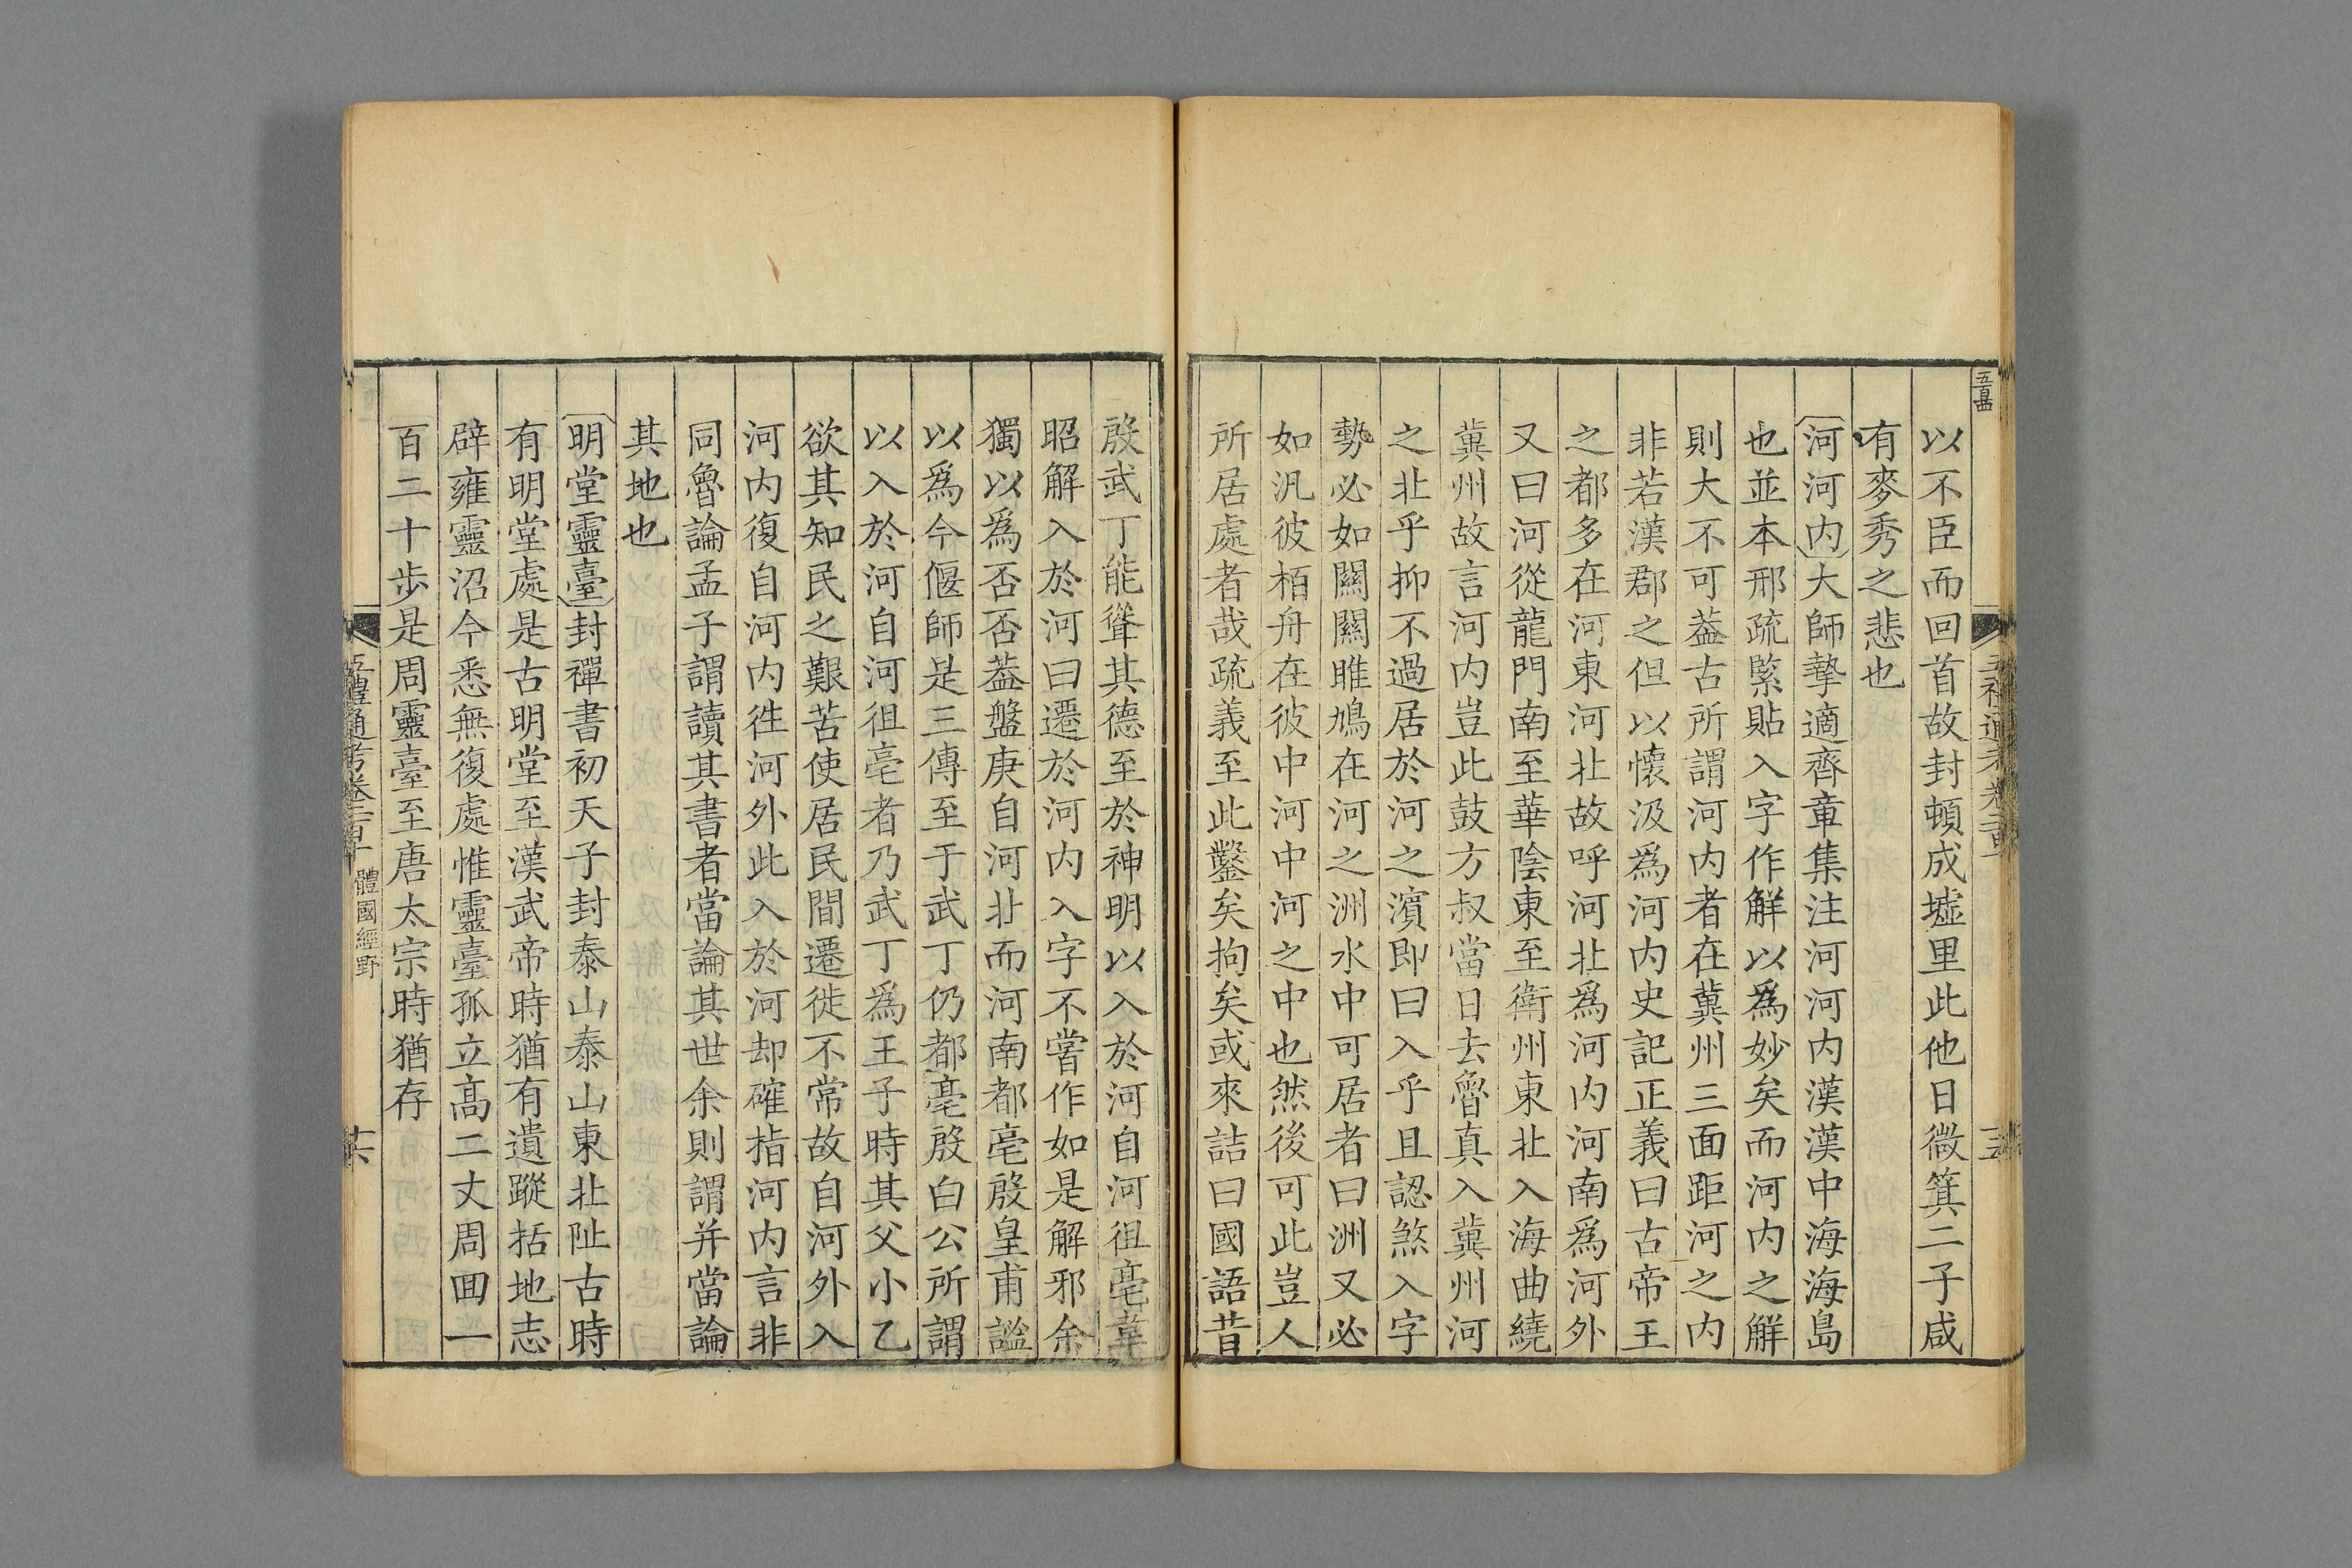 以不臣而回首故封頓成墟里此他日微箕二子咸
有麥秀之悲也
河河内大師摯適齊章集注河河内漢漢中海海島
也並本邢疏緊貼入字作解以爲妙矣而河内之解
則大不可葢古所謂河内者在冀州三面距河之内
非若漢郡之但以懷汲爲河内史記正義曰古帝王
之都多在河東河北故呼河北爲河内河南爲河外
又曰河從龍門南至華陰東至衛州東北入海曲繞
冀州故言河内豈此鼓方叔當日去魯真入冀州河
之北乎抑不過居於河之濱即曰入乎且認煞入字
勢必如關關雎鳩在河之洲水中可居者曰洲又必
如汎彼柏舟在彼中河中河之中也然後可此豈人
所居處者哉疏義至此鑿矣拘矣或來詰曰國語昔
殷武丁能聳其德至於神明以入於河自河徂亳韋
昭解入於河曰遷於河内入字不嘗作如是解邪余
獨以爲否否葢盤庚自河北而河南都亳殷皇甫謐
以爲今偃師是三傳至于武丁仍都亳殷白公所謂
以入於河自河徂亳者乃武丁爲王子時其父小乙
欲其知民之艱苦使居民間遷徙不常故自河外入
河内復自河内徃河外此入於河却確指河内言非
同魯論孟子謂讀其書者當論其世余則謂并當論
其地也
明堂靈臺封禪書初天子封泰山泰山東北阯古時
有明堂處是古明堂至漢武帝時猶有遺蹤括地志
辟雍靈沼今悉無復處惟靈臺孤立髙二丈周回一
百二十步是周靈臺至唐太宗時猶存
五禮通考卷二百十
體國經野